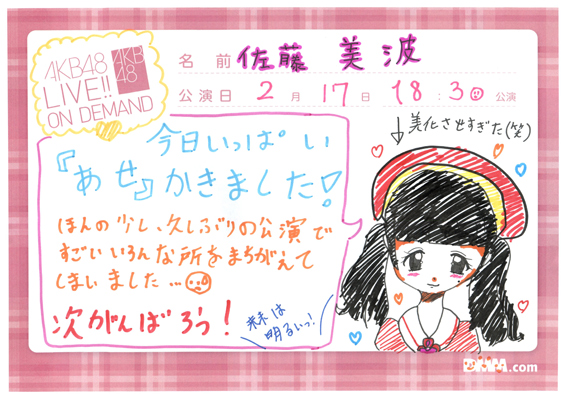 AKB48
LIVE!!
ON DEMAND
AKB
48
名前 佐藤 美波
公演日 2月17日 18:30 公演
↓美化させすぎた(笑)
今日いっぱい
『あせ』かきました!
ほんの少し、久しぶりの公演で
すごいいろんな所をまちがえて
しまいました…
次がんばろう!
未来は
明るいっ!
DMM.com